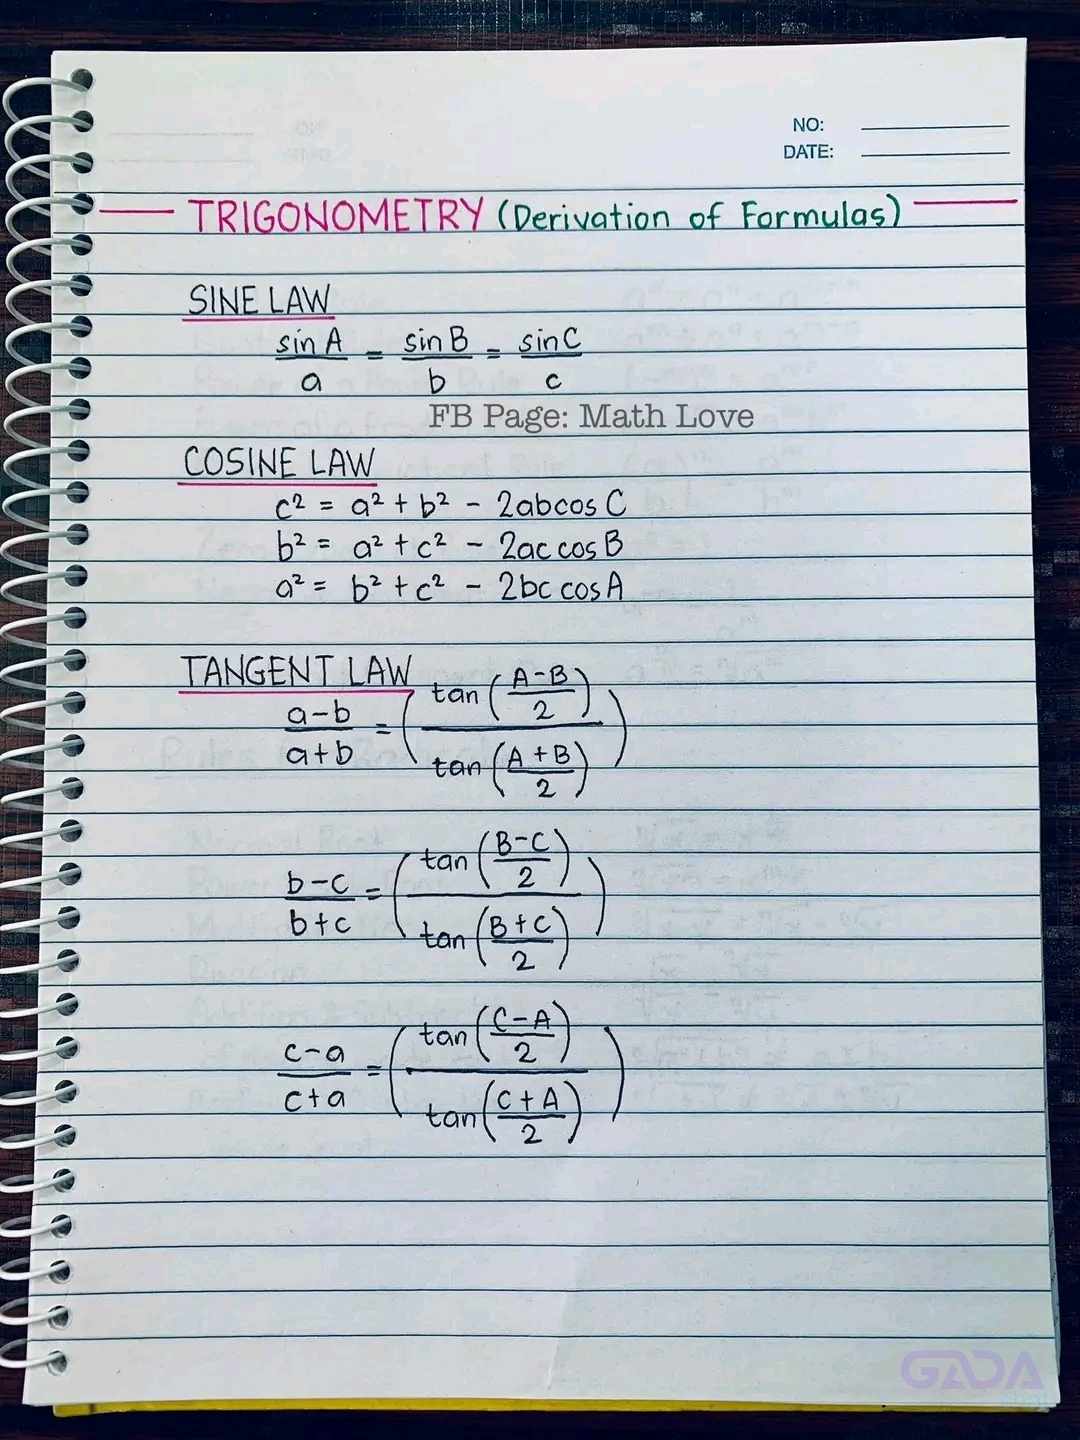 NO:
DATE:
TRIGONOMETRY (Derivation of Formulas)
SINE LAW
sin A / a = sin B / b = sin C / c
FB Page: Math Love
COSINE LAW
c² = a² + b² - 2abcos C
b² = a² + c² - 2ac cos B
a² = b² + c² - 2bc cos A
TANGENT LAW
a-b / a+b = ( tan (A-B / 2) / tan (A+B / 2) )
b-c / b+c = ( tan (B-C / 2) / tan (B+C / 2) )
c-a / c+a = ( tan (C-A / 2) / tan (C+A / 2) )
GADA